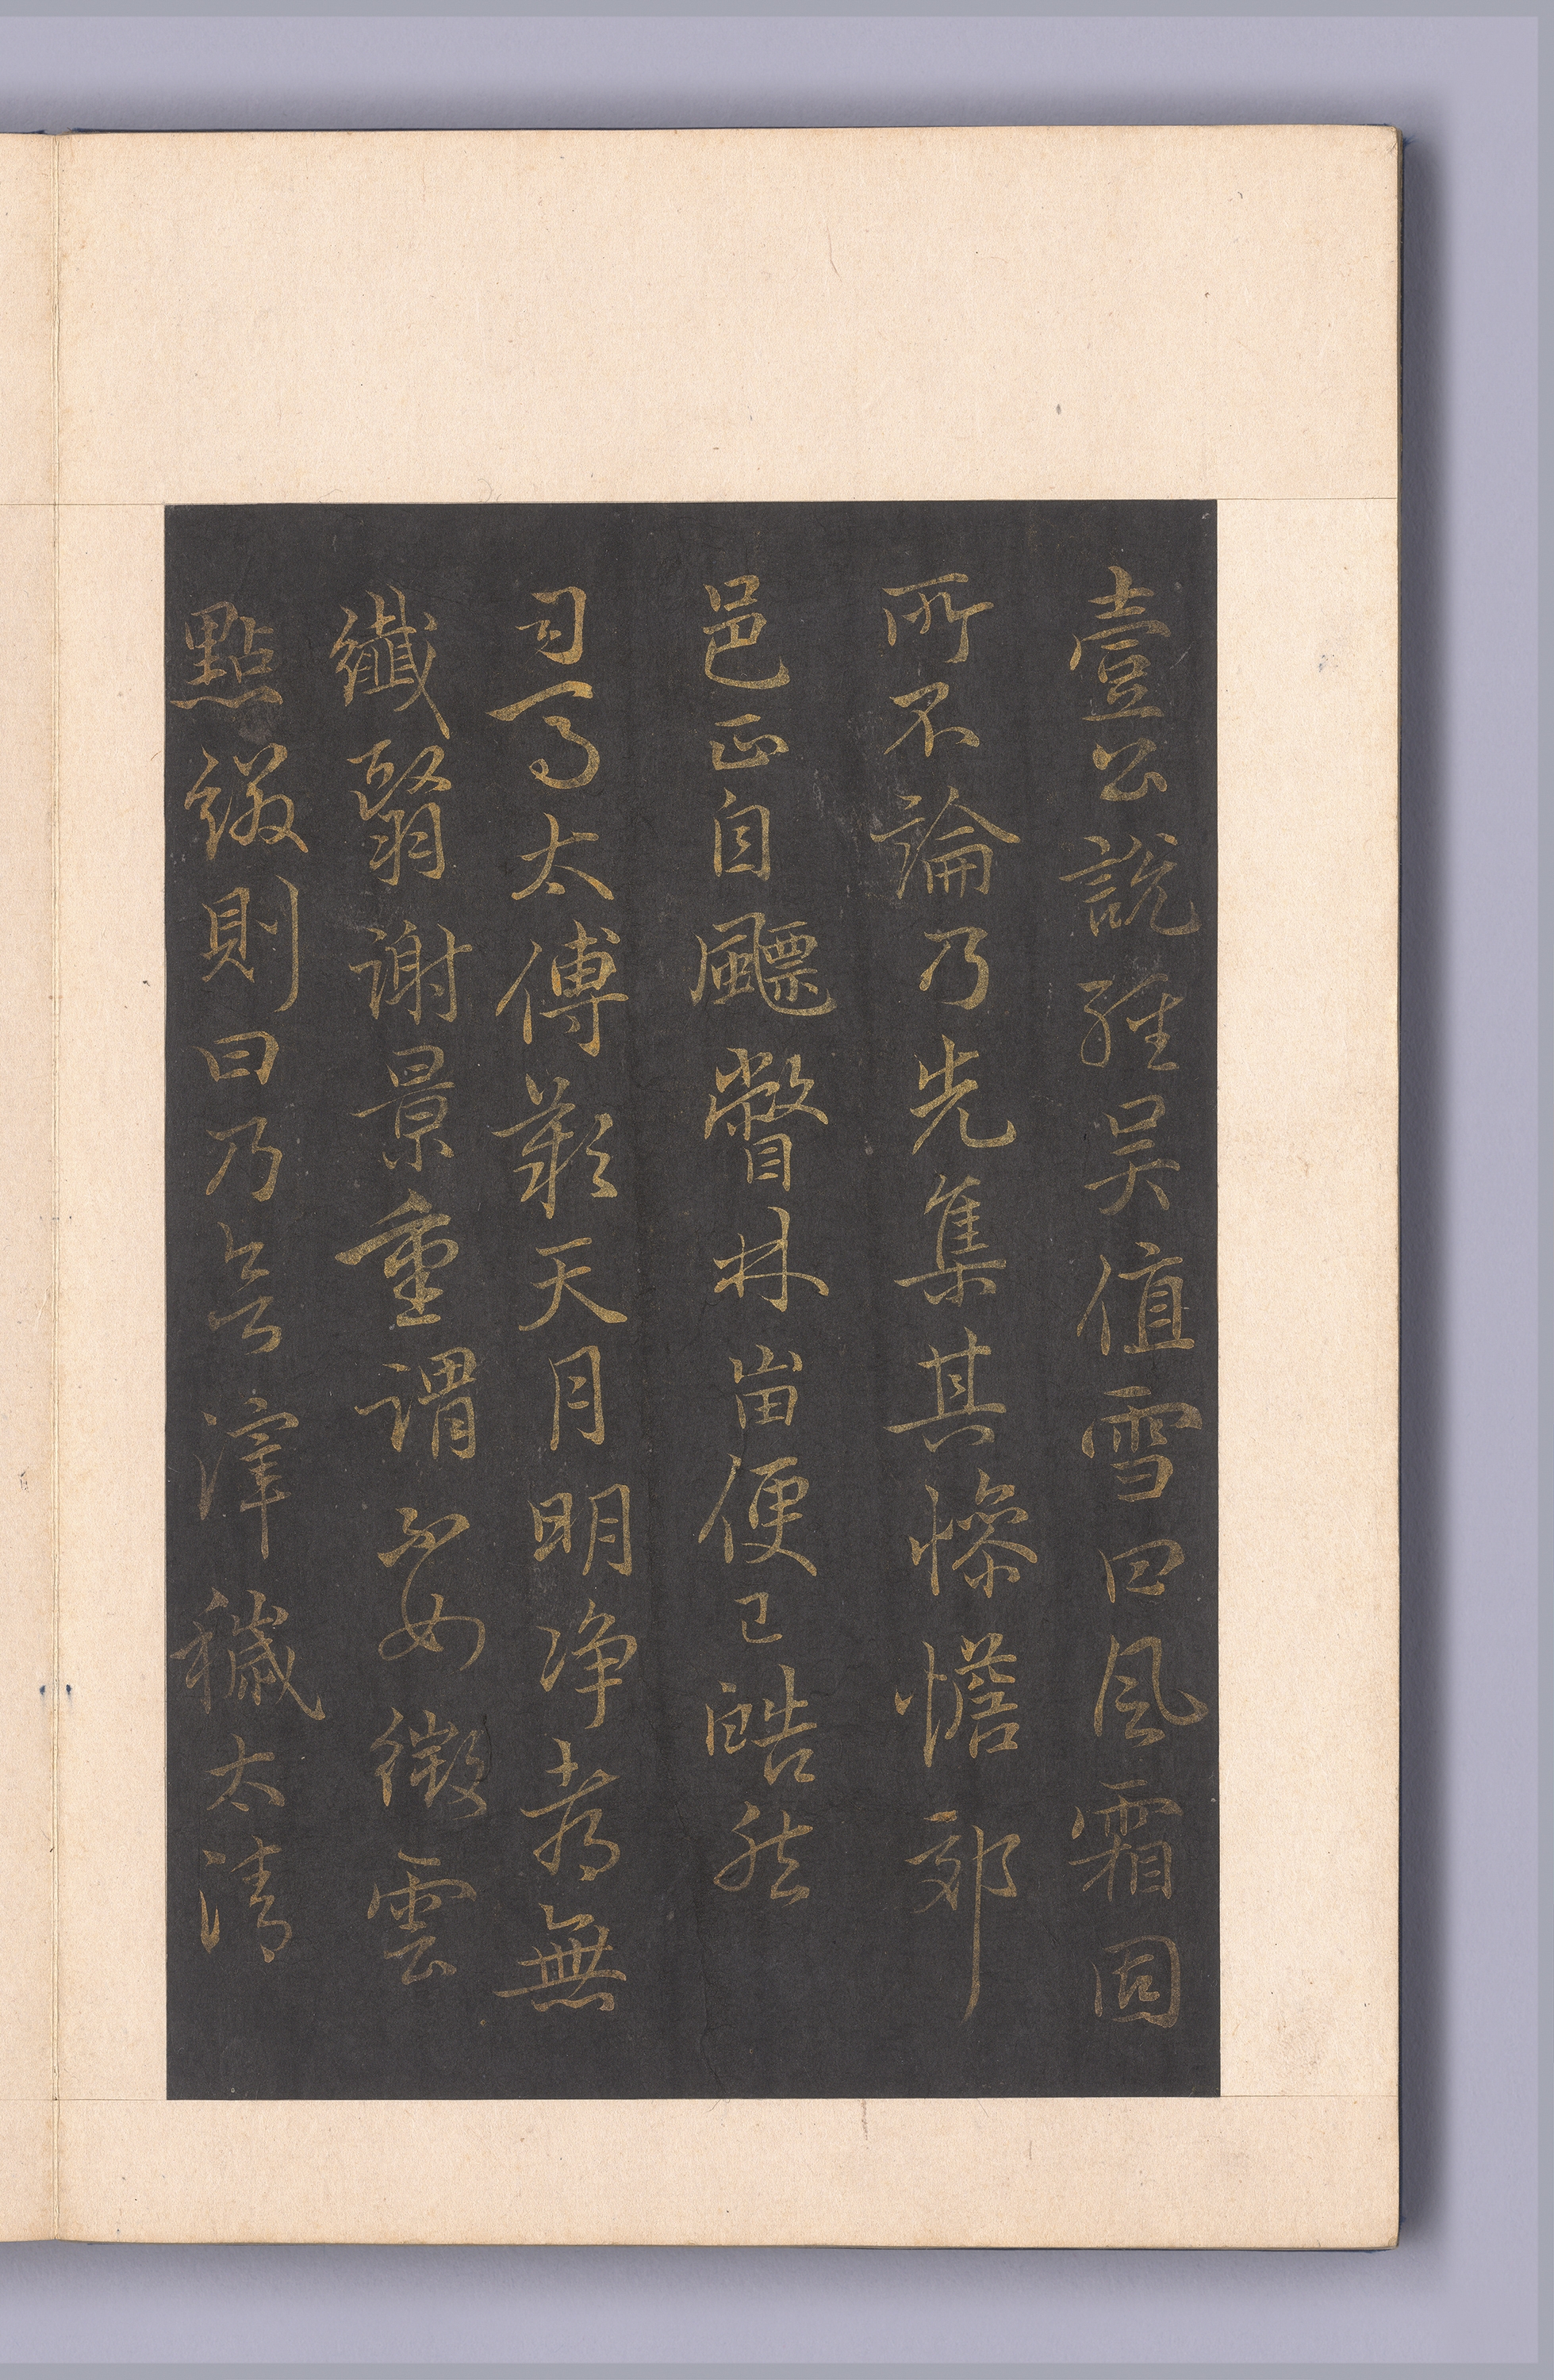 壹公說經吳值雪曰風霜固
所不論乃先集其慘憺郊
邑正自飃瞥林峀便已皓然
司馬太傅歎天月明净都無
纖翳謝景重謂不如微雲
點綴則曰乃滓穢太清